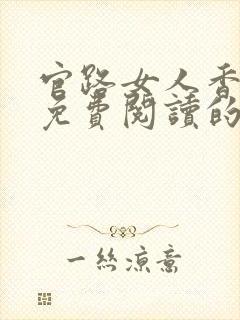 官路女人香
免費閱讀的
一絲涼意